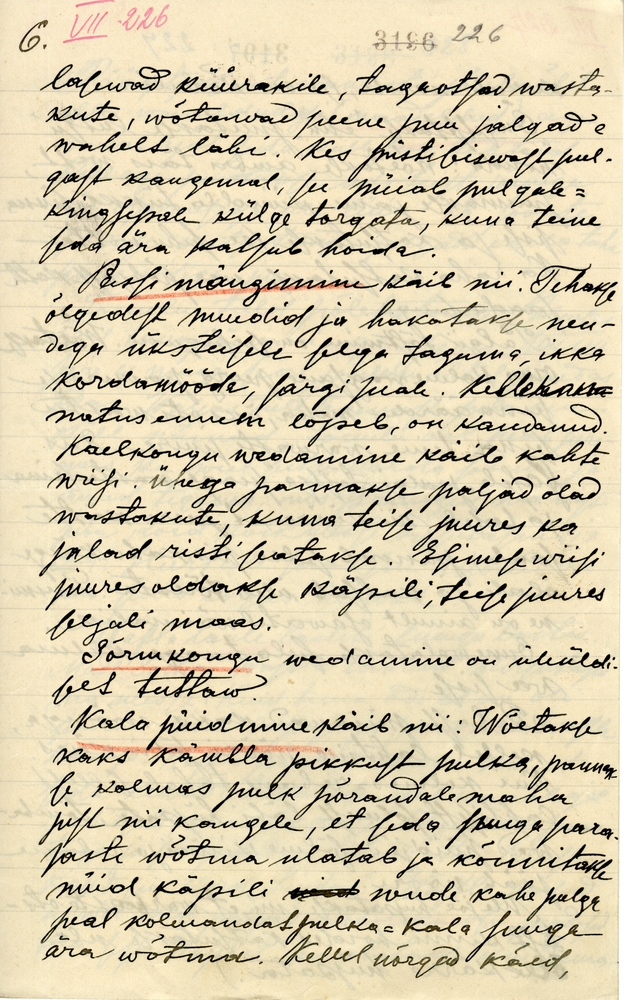 6. VII 226 3196 226
lasewad küürakile, tagaotsad wasta-
kute, wõtawad peene puu jalgade
wahelt läbi. Kes püstiseiswast pul-
gast kaugemal, se püiab pulgale=
kingsepale külge torgata, kuna teine
seda ära katsub hoida.
Pussi mängimine käib nii. Tehakse
õlgedest nuudid ja hakatakse nen-
dega üksteisele selga taguma, ikka
kordamööda, särgi peale. Kelle kan-
natus ennem lõpeb, on kaudanud.
Kaelkoogu wedamine käib kahte
wiisi. Ühega pannakse paljad õlad
wastakute, kuna teise juures ka
jalad risti seatakse. Esimese wiisi
juures oldakse käpsili, teise juures
seljali maas.
Sõrmkoogu wedamine on üleüldi-
selt tuttaw.
Kala püidmine käib nii: Wõetakse
kaks kämbla pikkust pulka, pannak
se kolmas pulk põrandale maha
just nii kaugele, et seda suuga para-
jaste wõtma ulatab ja kõnnitakse
nüid käpsili nende kahe pulga
peal kolmandat pulka=kala suuga
ära wõtma. Kellel nõrgad käed,